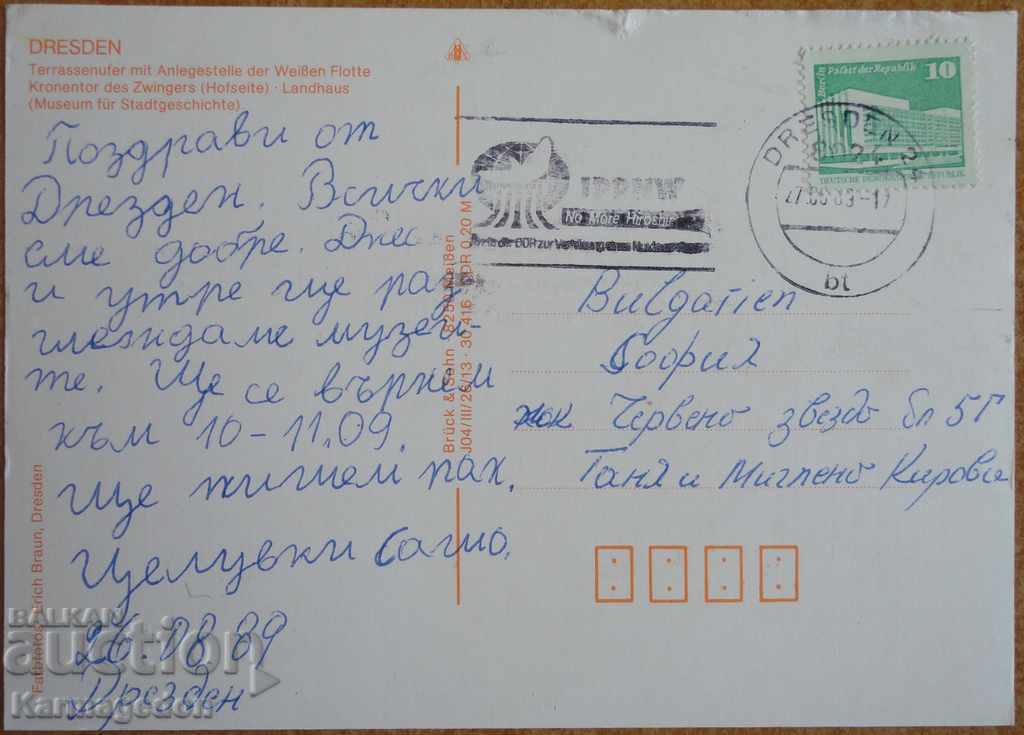 DRESDEN
Terrassenufer mit Anlegestelle der Weißen Flotte
Kronentor des Zwingers (Hofseite) · Landhaus
(Museum für Stadtgeschichte)
Поздрави от
Дрезден. Всички
сме добре. Днес
и утре ще раз-
глеждаме музеи-
те. Ще се върнем
към 10-11.09.
Ще пишем пак.
Целувки Сашо.
26.08.89
Дрезден
Farbfotos: Erich Braun, Dresden
Brück & Sohn · 8250 Meißen
J04/III/26/13 · 30 416 DDR 0,20 M
IPPNW
No More Hiroshima
der DDR zur
DRESDEN
-17
bt
Berlin Palast der Republik 10
DEUTSCHE DEMOKRATISCHE REPUBLIK
Bulgarien
София
жк Червено звездо бл 5Г
Таня и Миглено Кирови
BALKAN
auction
Karmagedon